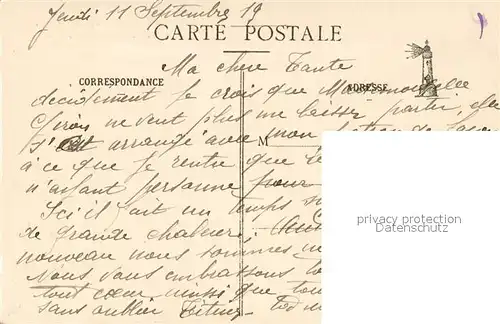 Jeudi 11 Septembre 19
CARTE POSTALE
CORRESPONDANCE
ADRESSE
M
Ma chere Tante
décidément je crois que Mademoiselle
Giron ne veut plus me laisser partir, elle
s'est arrangé avec mon patron de façon
à ce que je rentre que le
n'ayant personne pour
Ici il fait un temps
de grande chaleur.
nouveau nous sommes
Nous vous embrassons
tout coeur ainsi que
sans oublier
privacy protection
Datenschutz